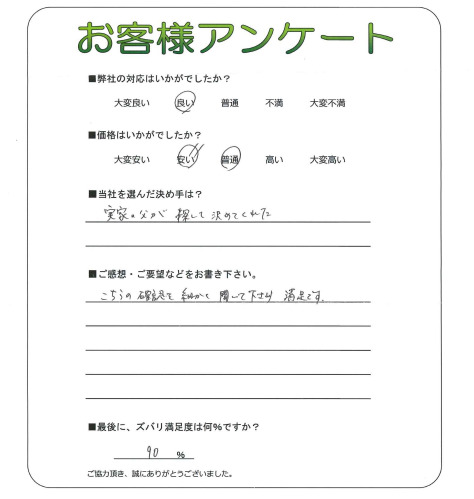 お客様アンケート
■弊社の対応はいかがでしたか？
大変良い 良い 普通 不満 大変不満
■価格はいかがでしたか？
大変安い 安い 普通 高い 大変高い
■当社を選んだ決め手は？
実家の父が 探して決めてくれた
■ご感想・ご要望などをお書き下さい。
こちらの確認を細かく聞いて下さり 満足です。
■最後に、ズバリ満足度は何%ですか？
90 %
ご協力頂き、誠にありがとうございました。